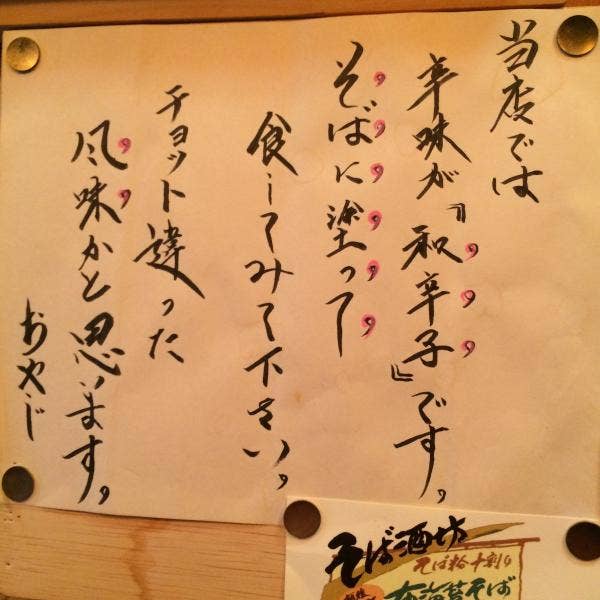 当店では
辛味が『和辛子』です。
そばに塗って
食してみて下さい。
チョット違った
風味かと思います。
おやじ
そば酒坊
そば粉十割の
布海苔そば